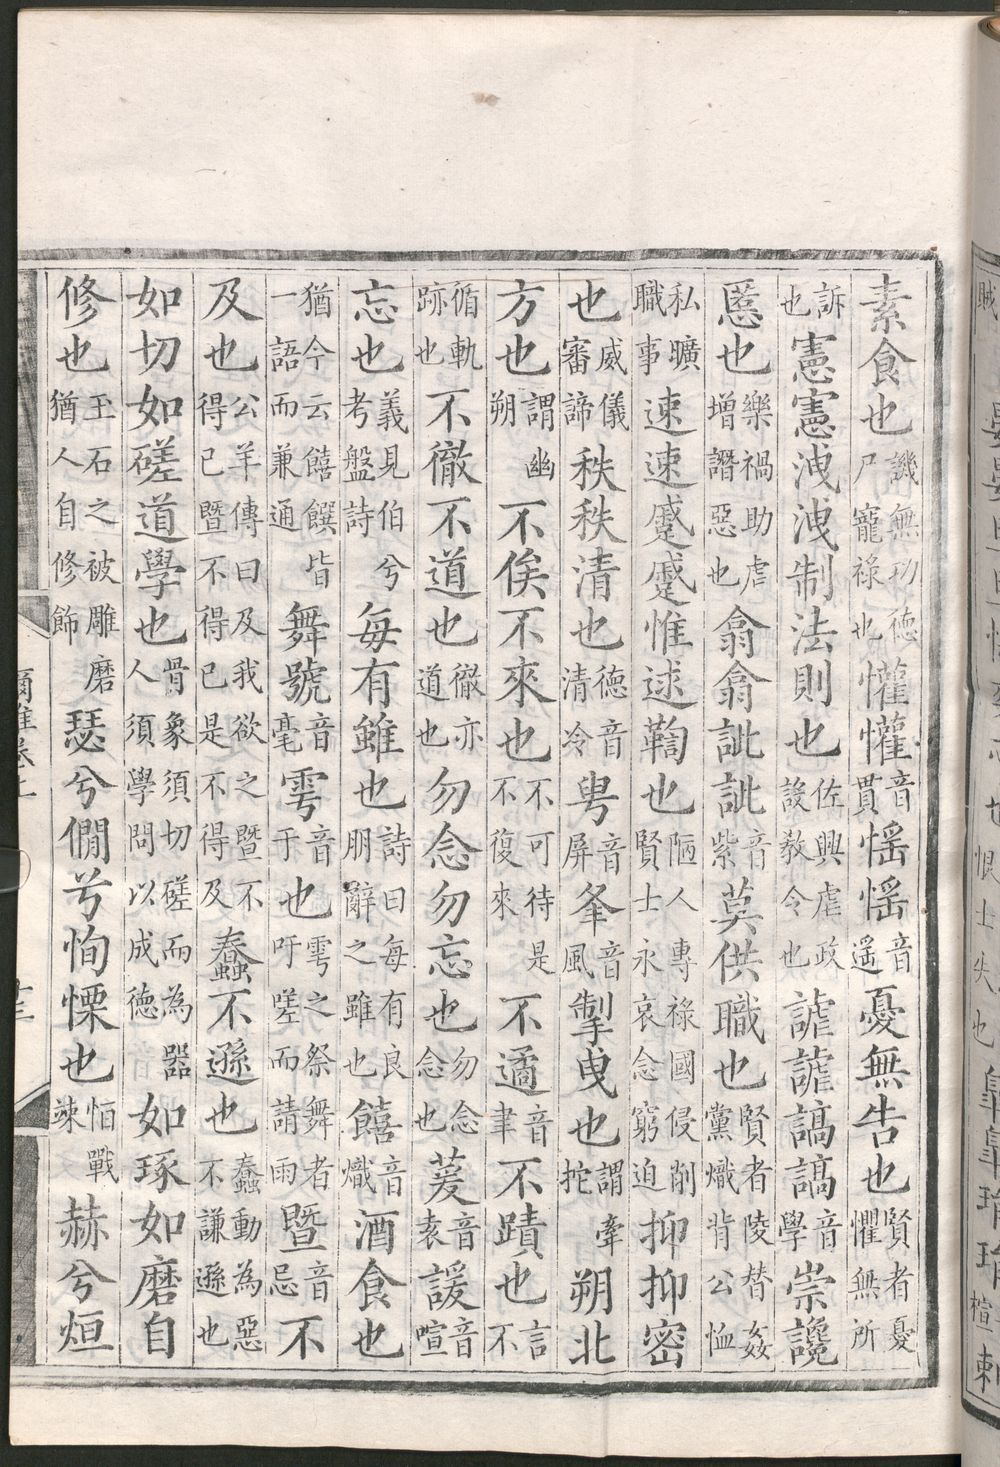 素食也譏無功德尸寵祿也懽懽音貫愮愮音遙憂無告也賢者憂懼無所
訴也憲憲洩洩制法則也佐興虐政設教令也謔謔謞謞音學崇讒
慝也樂禍助虐增譖惡也翕翕訿訿音紫莫供職也賢者陵替姦黨熾背公恤
私曠職事速速蹙蹙惟逑鞫也陋人專祿國侵削賢士永哀念窮迫抑抑密
也威儀審諦秩秩清也德音清泠甹音屏夆音風掣曳也謂牽拕朔北
方也謂幽朔不俟不來也不可待是不復來不遹音聿不蹟也言不
循軌跡也不徹不道也徹亦道也勿念勿忘也勿念念也萲音袁諼音喧
忘也義見伯兮考盤詩每有雖也詩曰每有良朋辭之雖也饎音熾酒食也
猶今云饎饌皆一語而兼通舞號音毫雩音于也雩之祭舞者吁嗟而請雨暨音忌不
及也公羊傳曰及我欲之暨不得已暨不得已是不得及蠢不遜也蠢動為惡不謙遜也
如切如磋道學也骨象須切磋而為器人須學問以成德如琢如磨自
修也玉石之被雕磨猶人自修飾瑟兮僩兮恂慄也恒戰竦赫兮烜